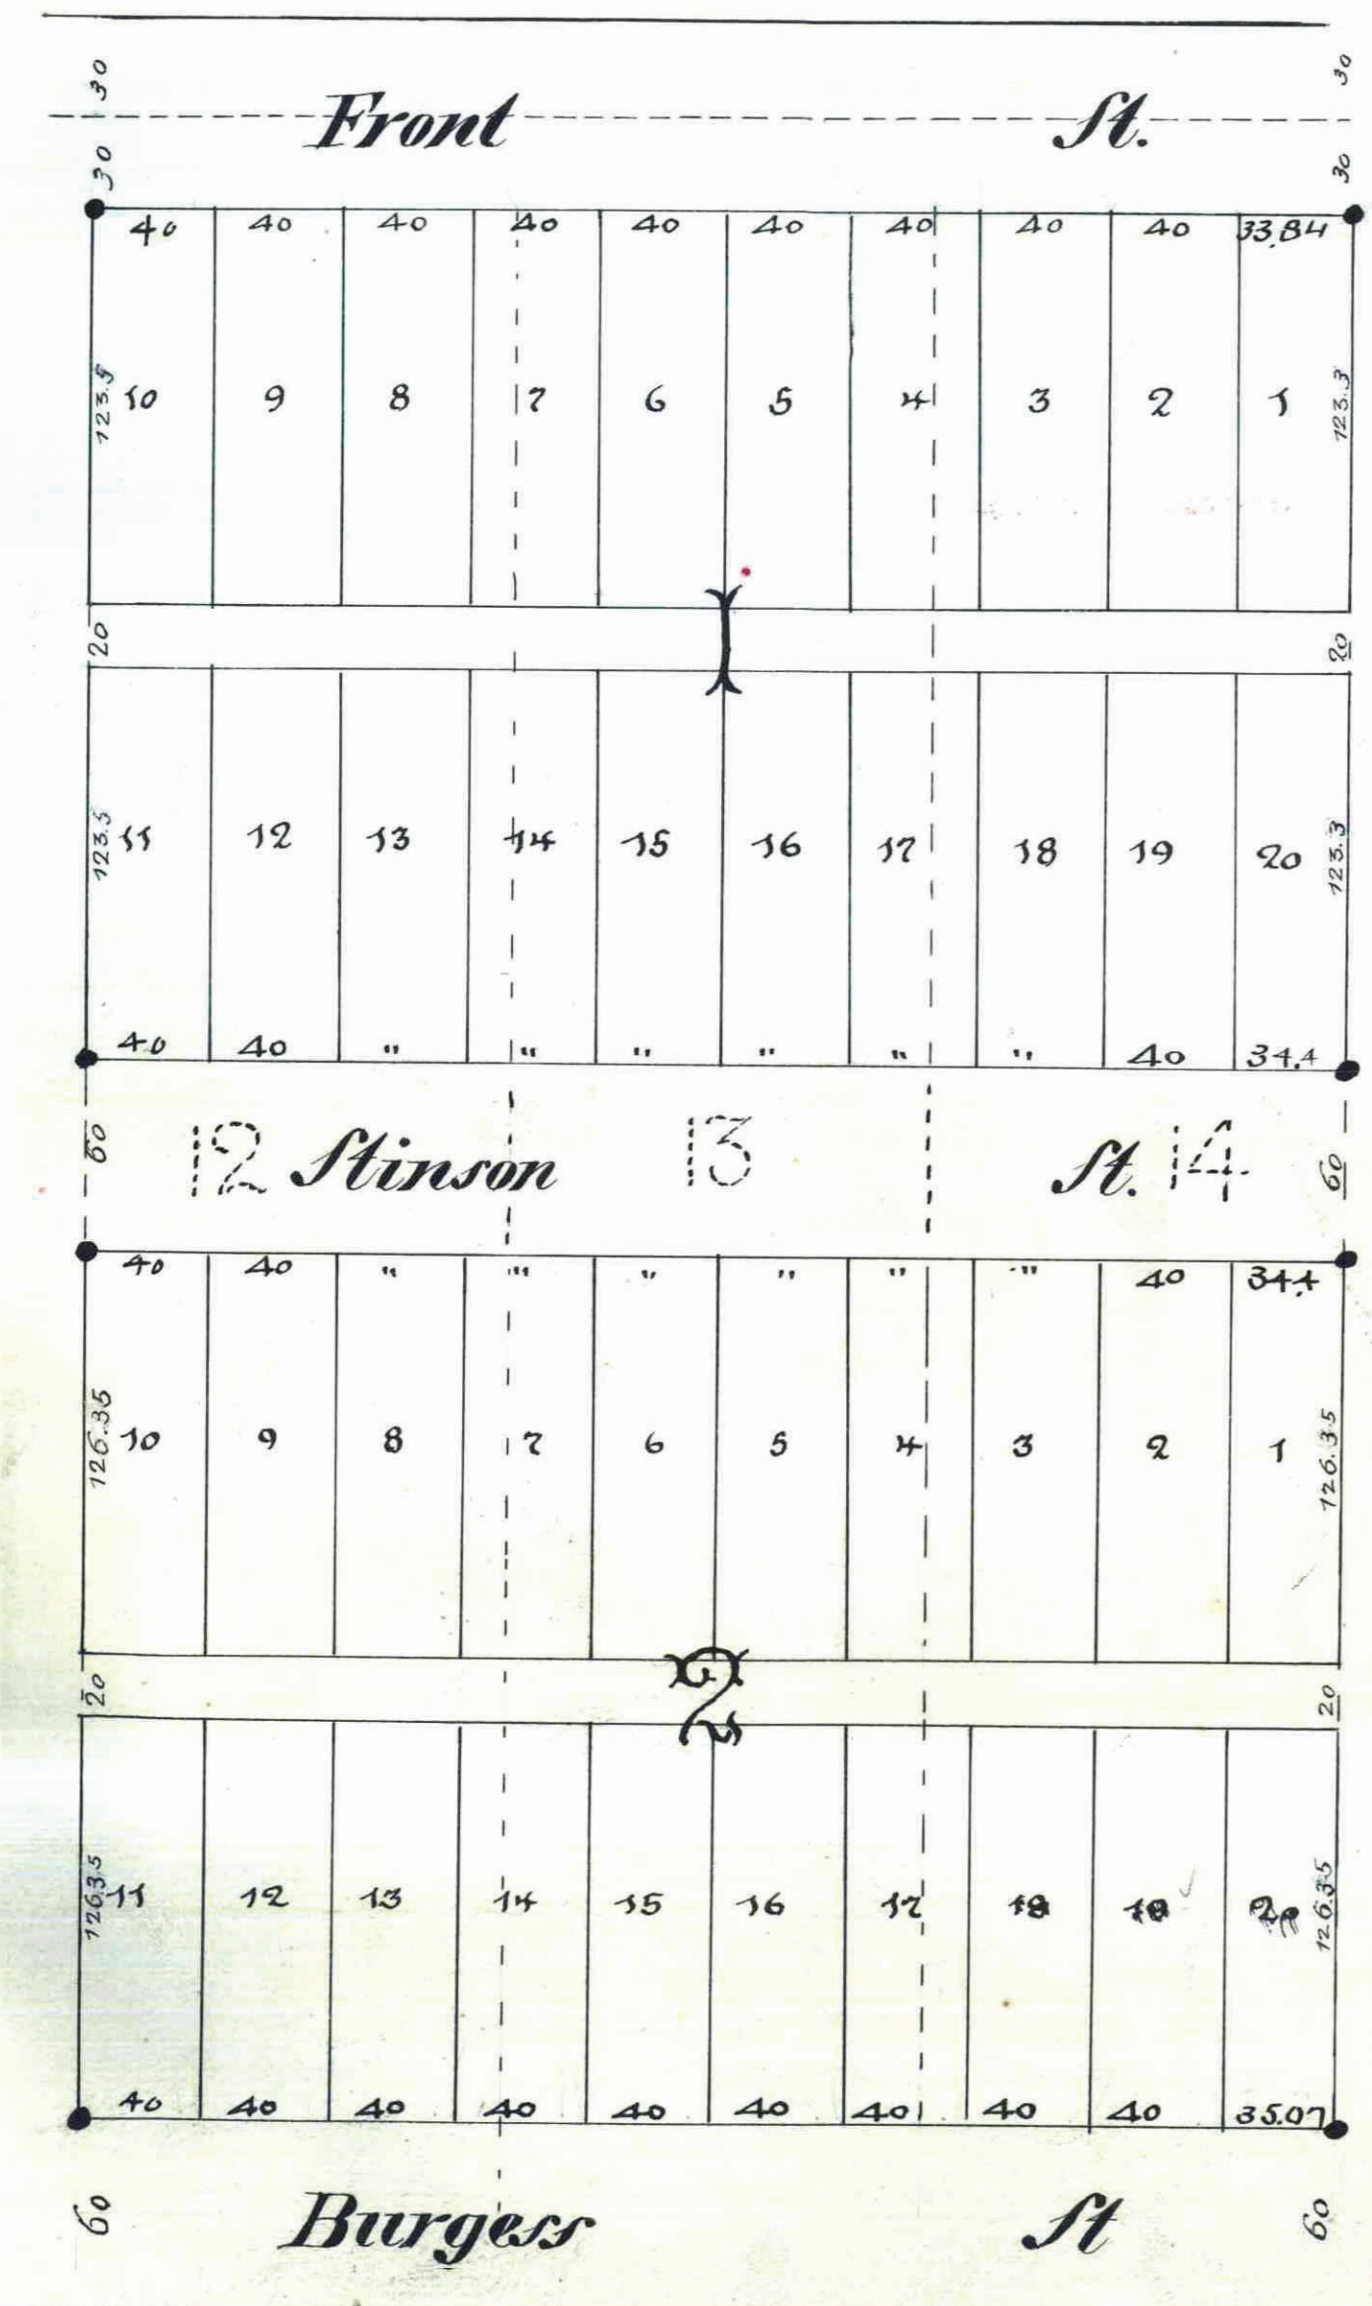 30 30
Front St.
30 30
40 40 40 40 40 40 40 40 40 33.84
123.5 10 9 8 7 6 5 4 3 2 1 123.3
1
20 20
123.5 11 12 13 14 15 16 17 18 19 20 123.3
40 40 " " " " " " 40 34.4
60 12 Stinson 13 St. 14 60
40 40 " " " " " " 40 34.4
126.35 10 9 8 7 6 5 4 3 2 1 126.35
2
20 20
126.35 11 12 13 14 15 16 17 18 19 20 126.35
40 40 40 40 40 40 40 40 40 35.07
60 Burgess St 60